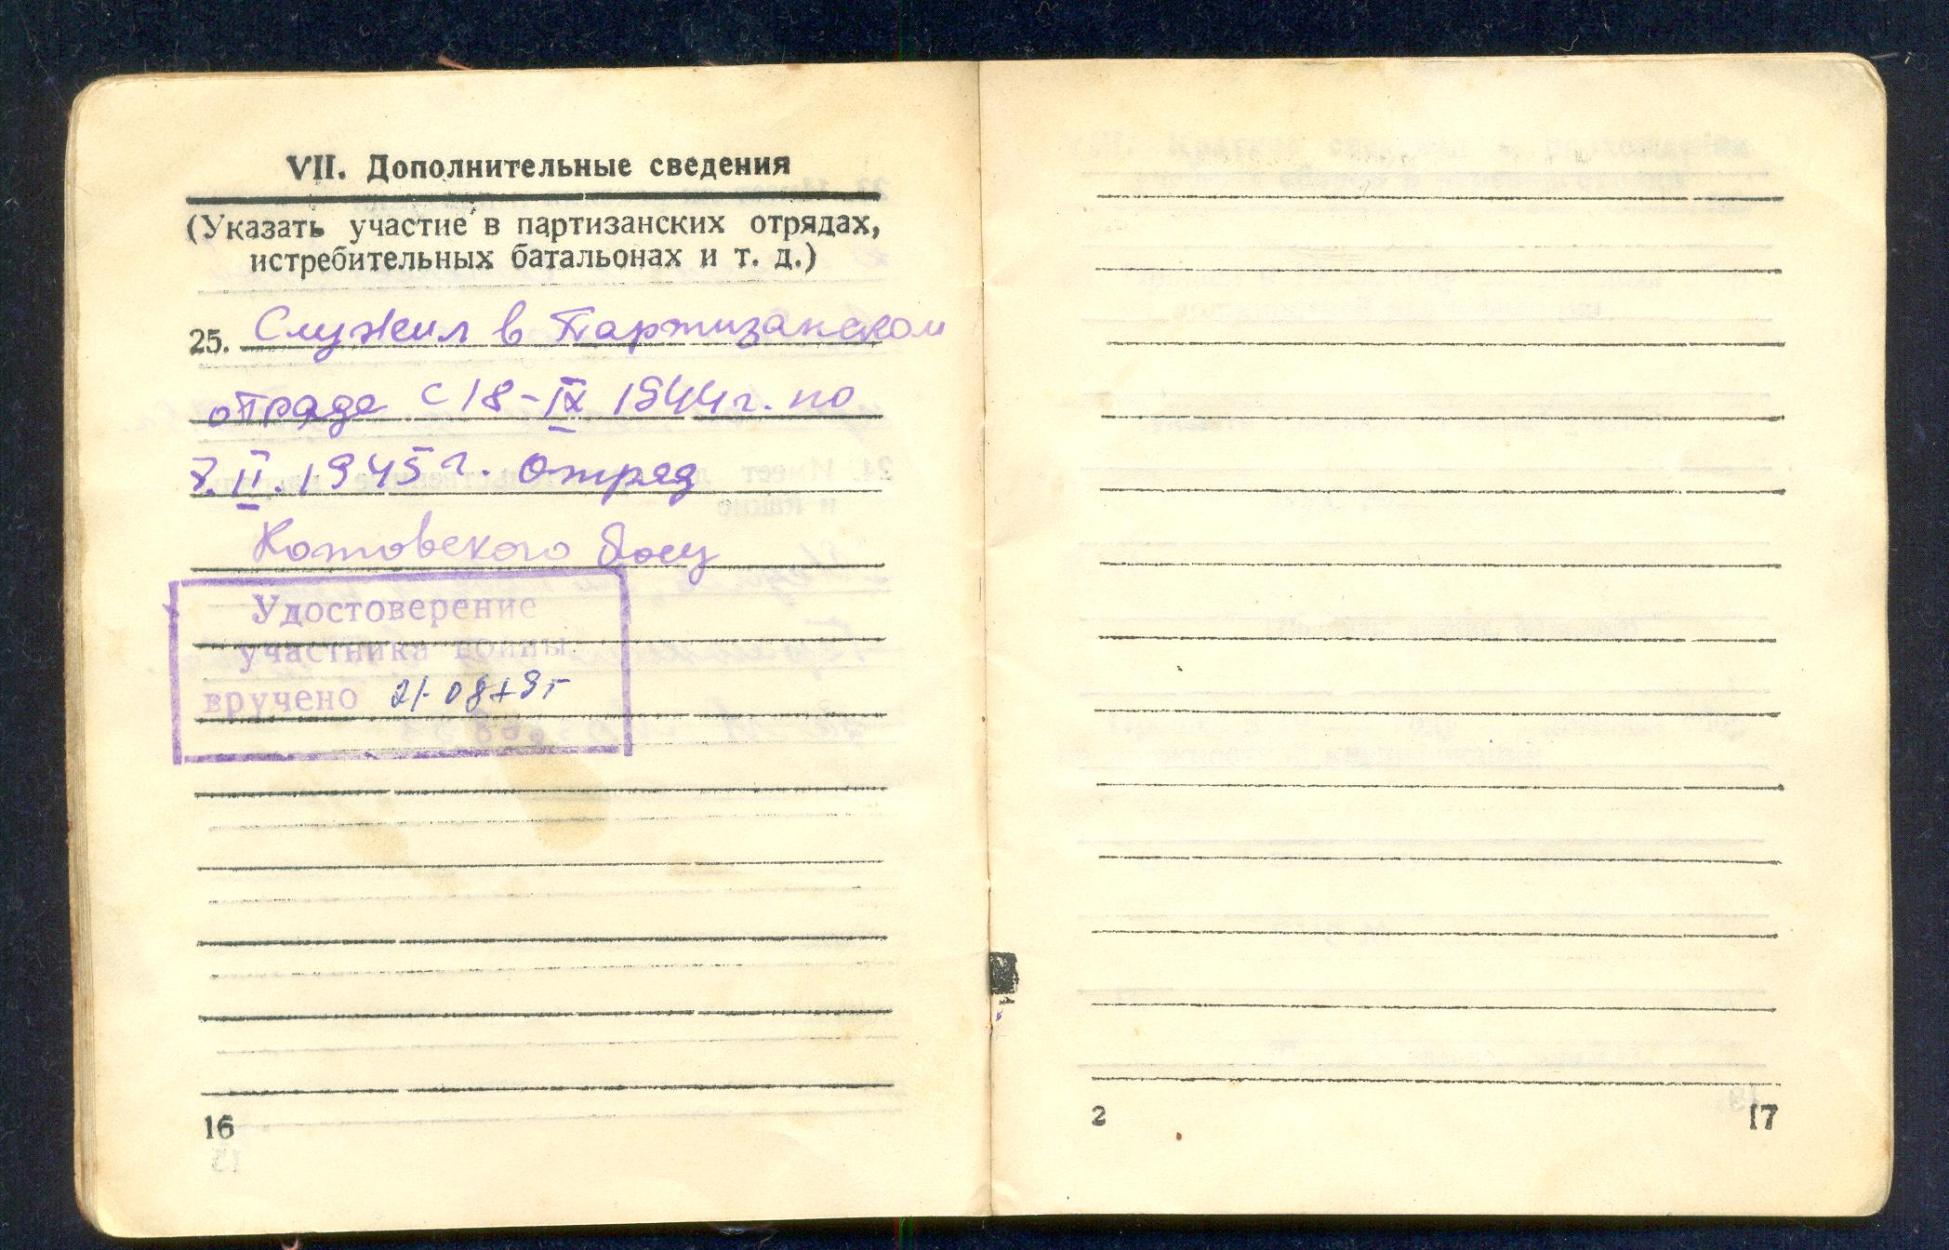 VII. Дополнительные сведения
(Указать участие в партизанских отрядах,
истребительных батальонах и т. д.)
25. Служил в Партизанском
отряде с 18-IX 1944г. по
7.II.1945г. Отряд
Котовского боец
Удостоверение
участника войны
вручено 21-08
16
2
17